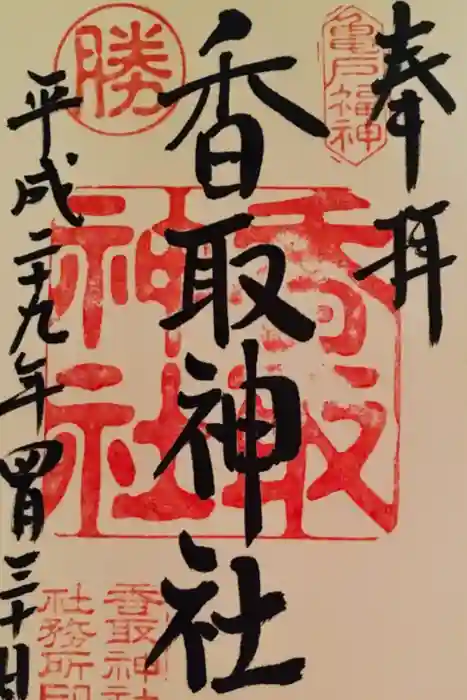 奉拝
亀戸福神
香取神社
勝
香取神社
平成二十九年四月三十日
香取神社
社務所印